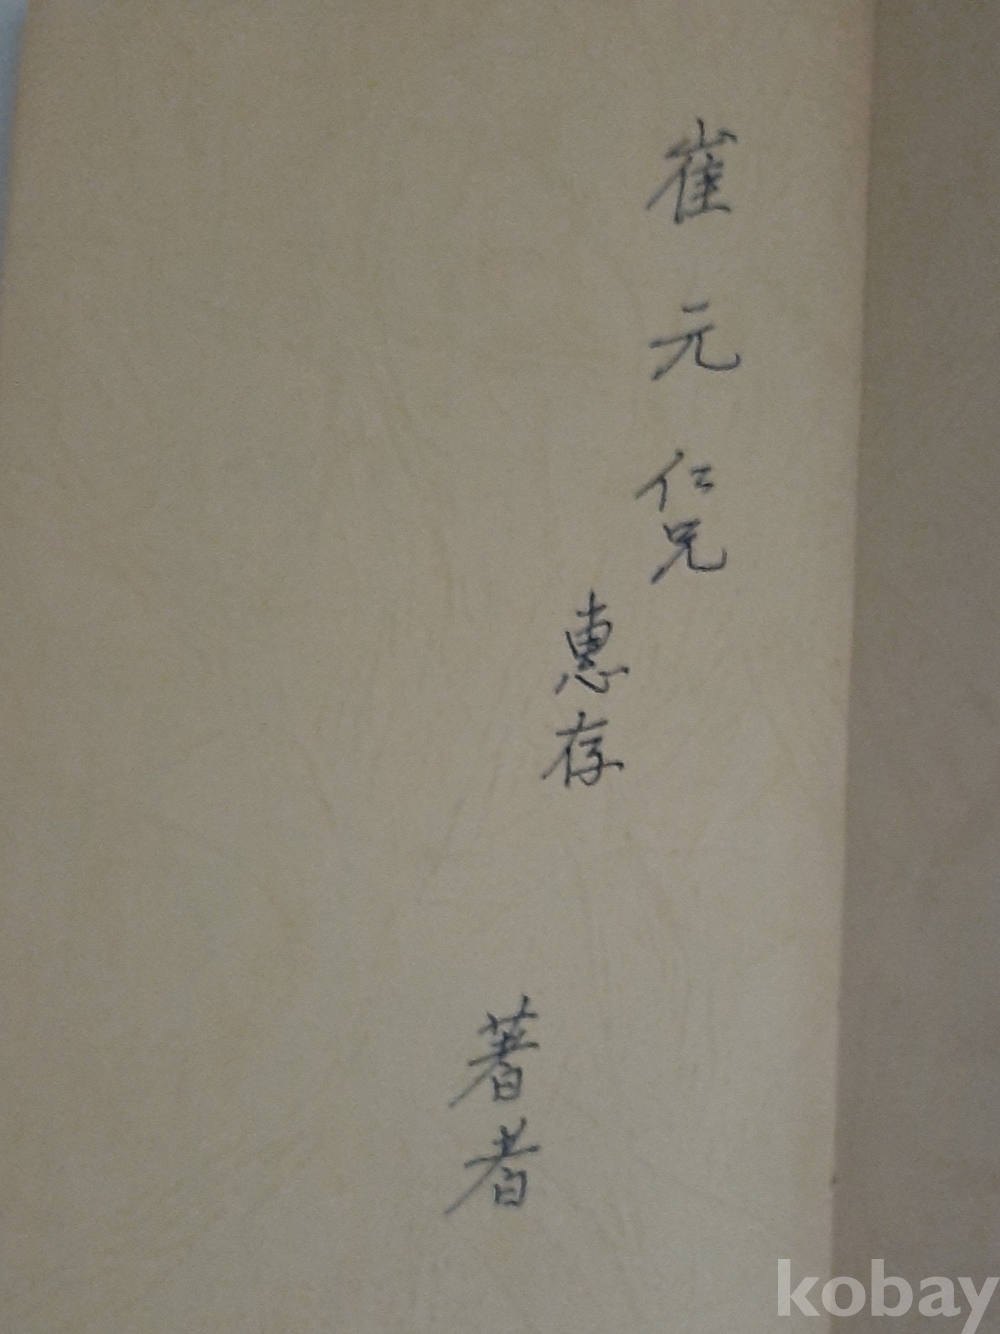 崔元仁兄
惠存
著者
kobay